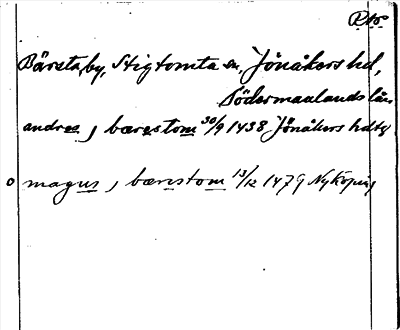 Rtr
Bärsta, by, Stigtomta sn, Jönåkers hd,
Södermanlands län
andres, bærestom 30/9 1438 Jönåkers hdtg
o magus, bærestom 13/12 1479 Nyköping